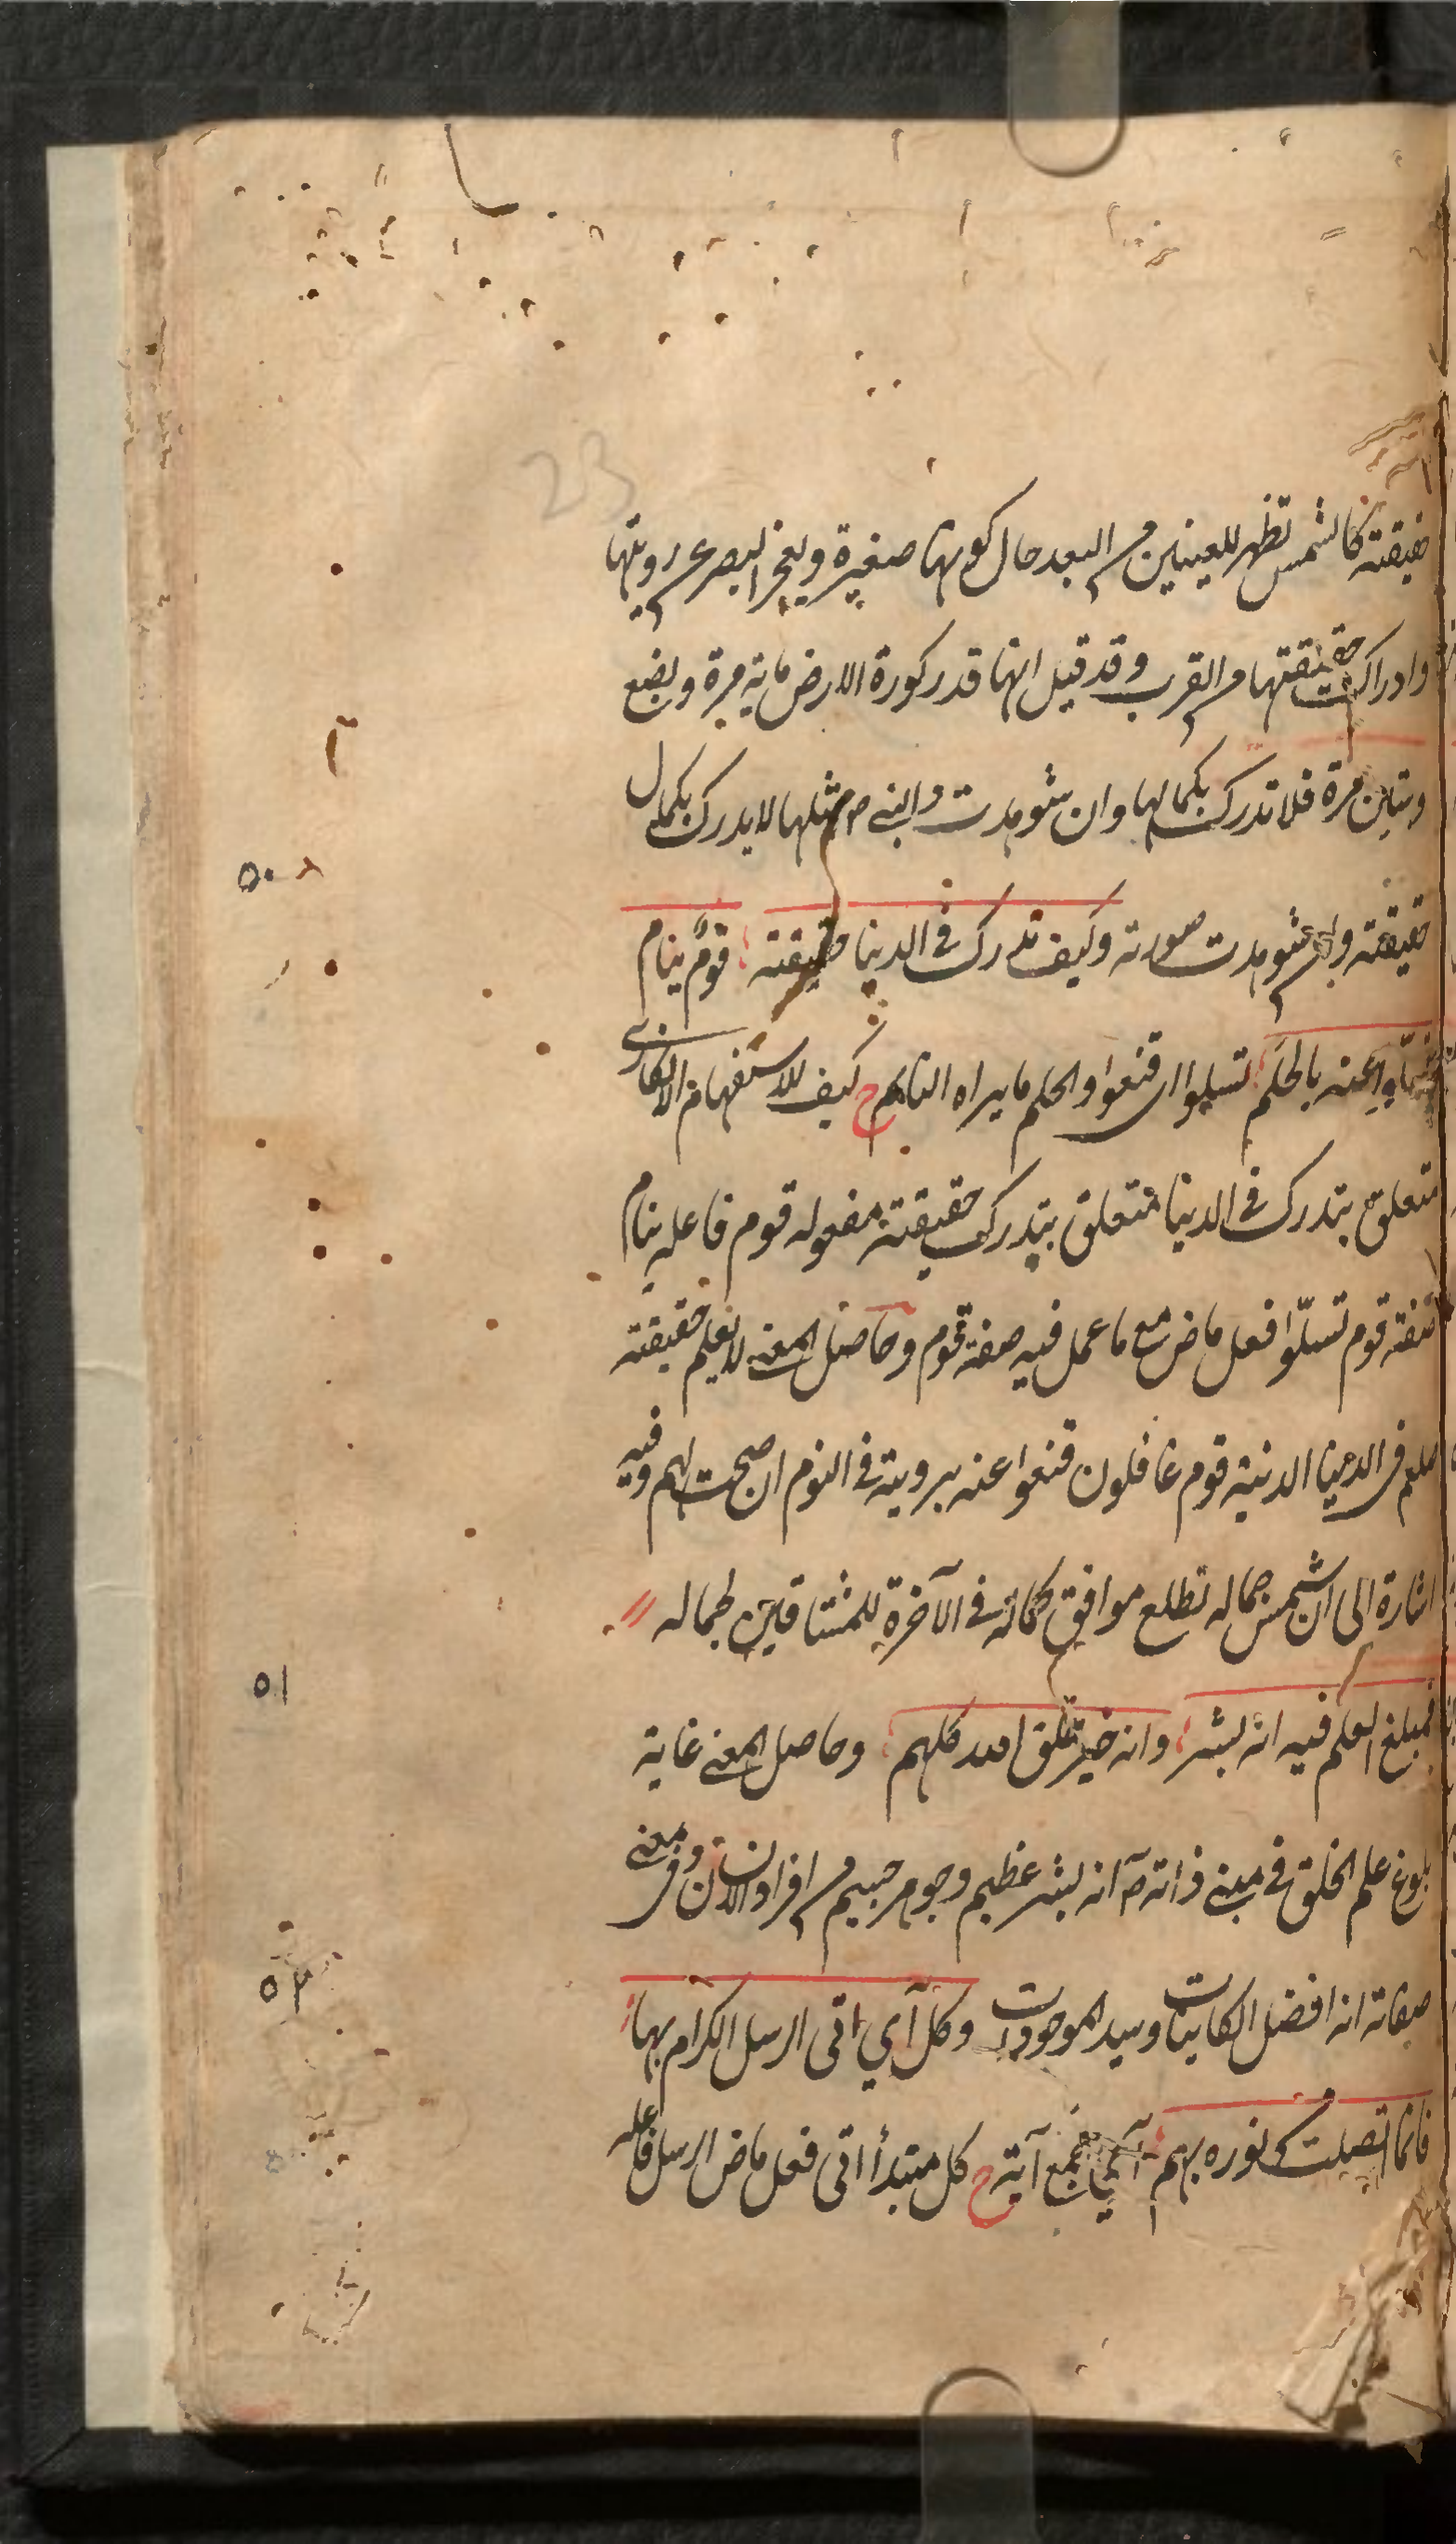 23
حقيقته كالشمس تظهر للعينين من البعد حال كونها صغيرة ويعجز البصر عن رويتها
وادراك حقيقتها من القرب وقد قيل انها قدر كورة الارض ماية مرة وبضع
وستين مرة فلا تدرك بكمالها وان شوهدت والنبي ص مثلها لا يدرك بكمال
حقيقته وان شوهدت صورته وكيف تدرك في الدينا حقيقته قومٌ ينام
تسلّوا عنه بالحلم تسلوا اى قنعوا والحلم ما يراه النائم ح كيف للاستفهام الانكارى
متعلق بتدرك في الدينا متعلق بتدرك حقيقته مفعوله قوم فاعله ينام
صفة قوم تسلّوا فعل ماض مع ما عمل فيه صفة قوم وحاصل المعنى لا يعلم حقيقته
صلعم فى الدينا الدنية قوم غافلون قنعوا عنه برويته في النوم ان صحت لهم وفيه
اشارة الى ان شمس جماله تطلع موافق كماله في الآخرة للمشتاقين لجماله
فمبلغ العلم فيه انه بشر وانه خير خلق الله كلهم وحاصل المعنى غاية
بلوغ علم الخلق في معنى ذاته ص انه بشر عظيم وجوهر جسيم من افراد الانسان وفى معنى
صفاته انه افضل الكاينات وسيد الموجودات وكل آي اتى الرسل الكرام بها
فانما اتصلت من نوره بهم آي جمع آية ح كل مبتدأ اتى فعل ماض الرسل فاعله
٥٠
٥١
٥٢